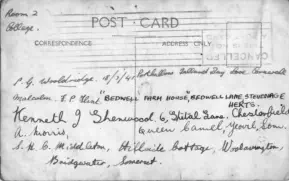 Room 2
College.
POST CARD
CORRESPONDENCE
ADDRESS ONLY
CANCELLED
P. G. Wooldridge. 18/3/41 Falmouth Cornwall
Malcolm F. P. Flint "BEDWELL FARM HOUSE" BEDWELL LANE STEVENAGE
HERTS.
Kenneth G Sherwood 6, Spital Lane, Chesterfield
A. Morris, Queen Camel, Yeovil, Som.
S. H. C. Middleton, Hillside Cottage, Woolavington,
Bridgwater, Somerset.